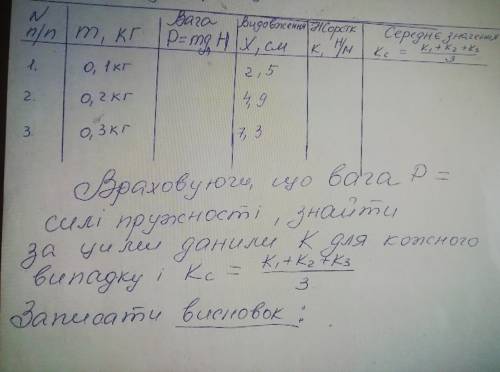 N п/п | m, кг | Вага P=mg, H | Видовження X, см | Жорстк K, Н/м | Середнє значення Kc = K1+K2+K3 / 3
1. | 0,1кг | | 2,5
2. | 0,2кг | | 4,9
3. | 0,3кг | | 7,3
Враховуючи, що вага P =
силі пружності, знайти
за цими даними K для кожного
випадку і Kc = K1+K2+K3 / 3
Записати висновок: